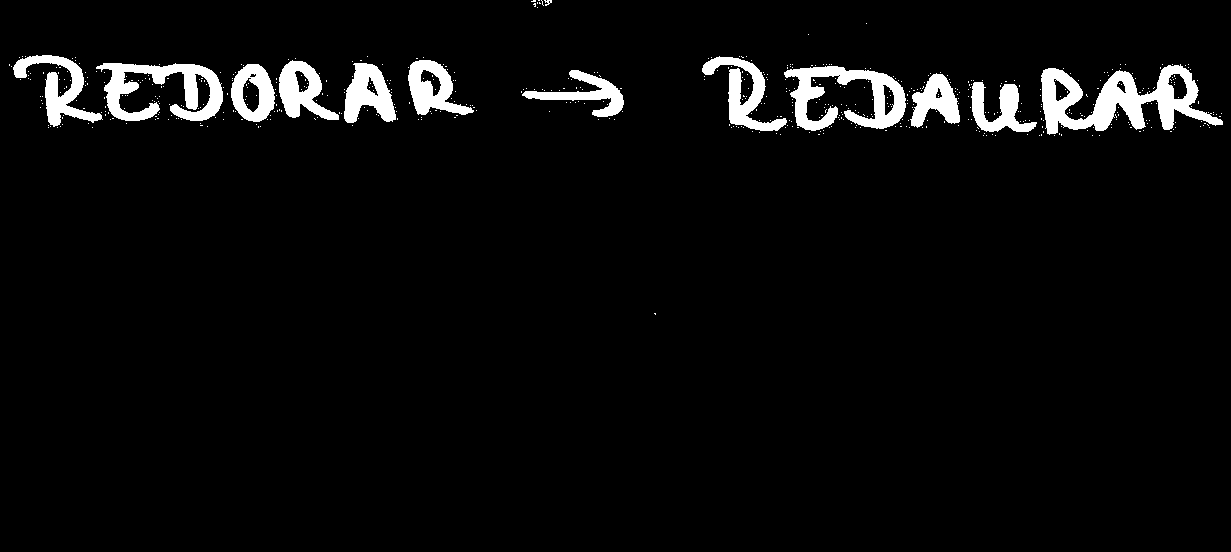 REDORAR → REDAURAR